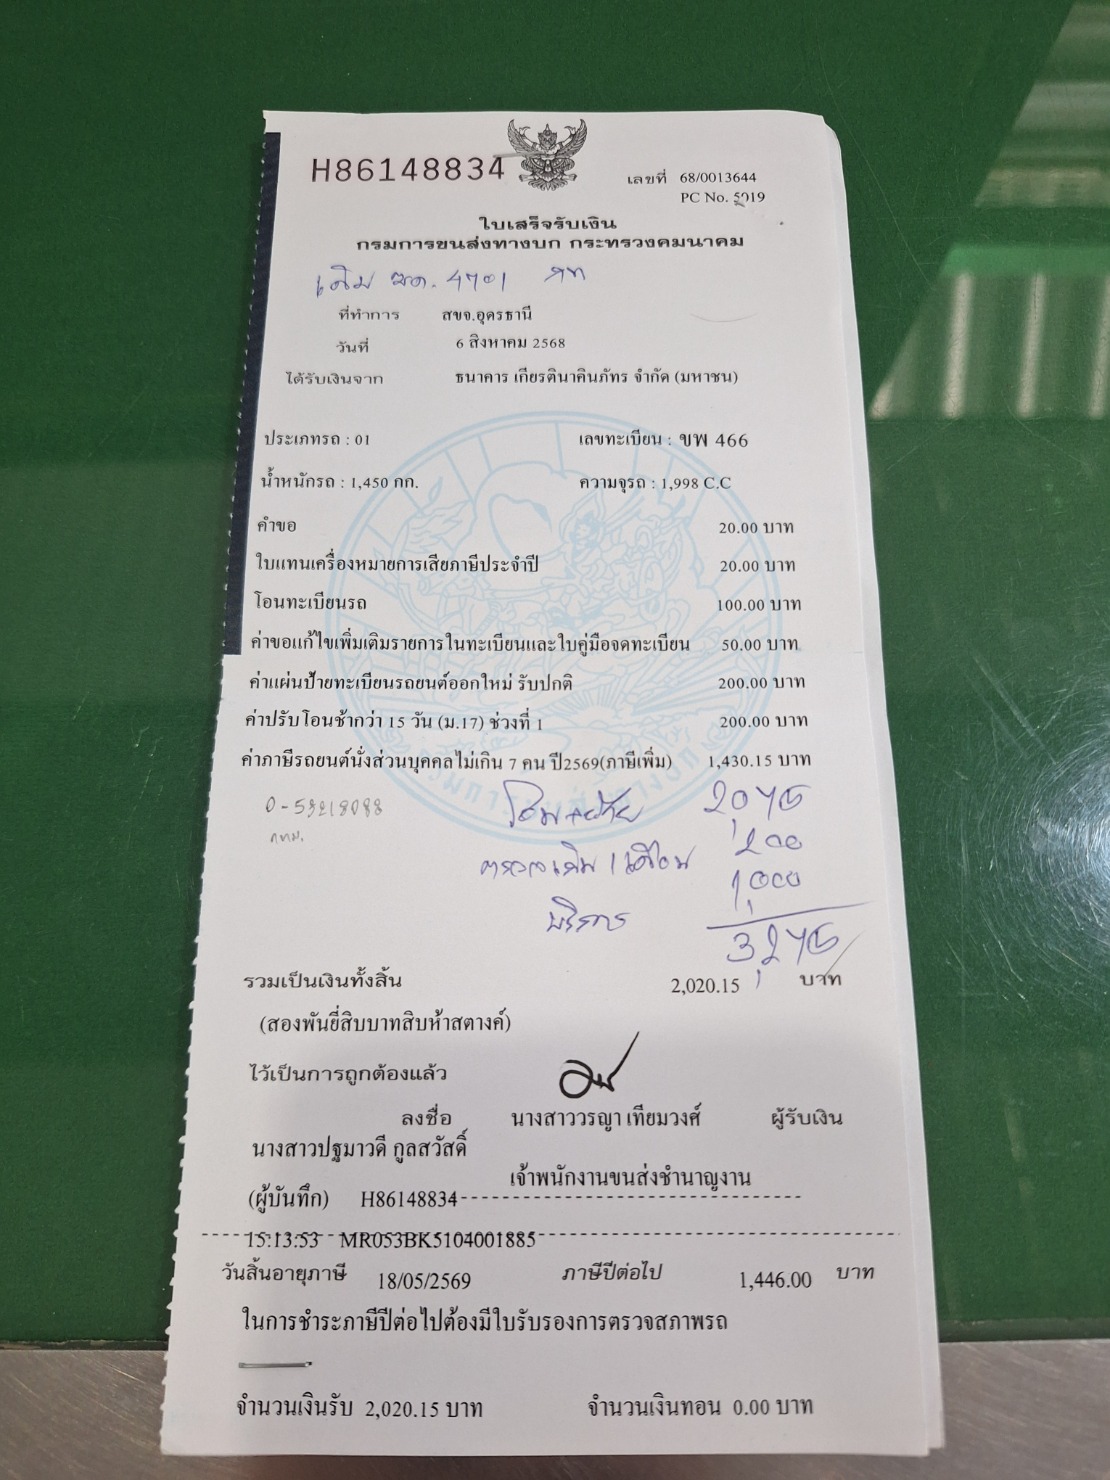 H86148834
เลขที่ 68/0013644
PC No. 5019
ใบเสร็จรับเงิน
กรมการขนส่งทางบก กระทรวงคมนาคม
เดิม ฆด. 4701 กท
ที่ทำการ สขจ.อุดรธานี
วันที่ 6 สิงหาคม 2568
ได้รับเงินจาก ธนาคาร เกียรตินาคินภัทร จำกัด (มหาชน)
ประเภทรถ : 01 เลขทะเบียน : ขพ 466
น้ำหนักรถ : 1,450 กก. ความจุรถ : 1,998 C.C
คำขอ 20.00 บาท
ใบแทนเครื่องหมายการเสียภาษีประจำปี 20.00 บาท
โอนทะเบียนรถ 100.00 บาท
ค่าขอแก้ไขเพิ่มเติมรายการในทะเบียนและใบคู่มือจดทะเบียน 50.00 บาท
ค่าแผ่นป้ายทะเบียนรถยนต์ออกใหม่ รับปกติ 200.00 บาท
ค่าปรับโอนช้ากว่า 15 วัน (ม.17) ช่วงที่ 1 200.00 บาท
ค่าภาษีรถยนต์นั่งส่วนบุคคลไม่เกิน 7 คน ปี2569(ภาษีเพิ่ม) 1,430.15 บาท
2,075
กทม.
200
1,000
บริการ
3,275
รวมเป็นเงินทั้งสิ้น 2,020.15 บาท
(สองพันยี่สิบบาทสิบห้าสตางค์)
ไว้เป็นการถูกต้องแล้ว
ลงชื่อ นางสาววรญา เทียมวงศ์ ผู้รับเงิน
นางสาวปฐมาวดี กูลสวัสดิ์
เจ้าพนักงานขนส่งชำนาญงาน
(ผู้บันทึก) H86148834
15:13:53 MR053BK5104001885
วันสิ้นอายุภาษี 18/05/2569 ภาษีปีต่อไป 1,446.00 บาท
ในการชำระภาษีปีต่อไปต้องมีใบรับรองการตรวจสภาพรถ
จำนวนเงินรับ 2,020.15 บาท จำนวนเงินทอน 0.00 บาท